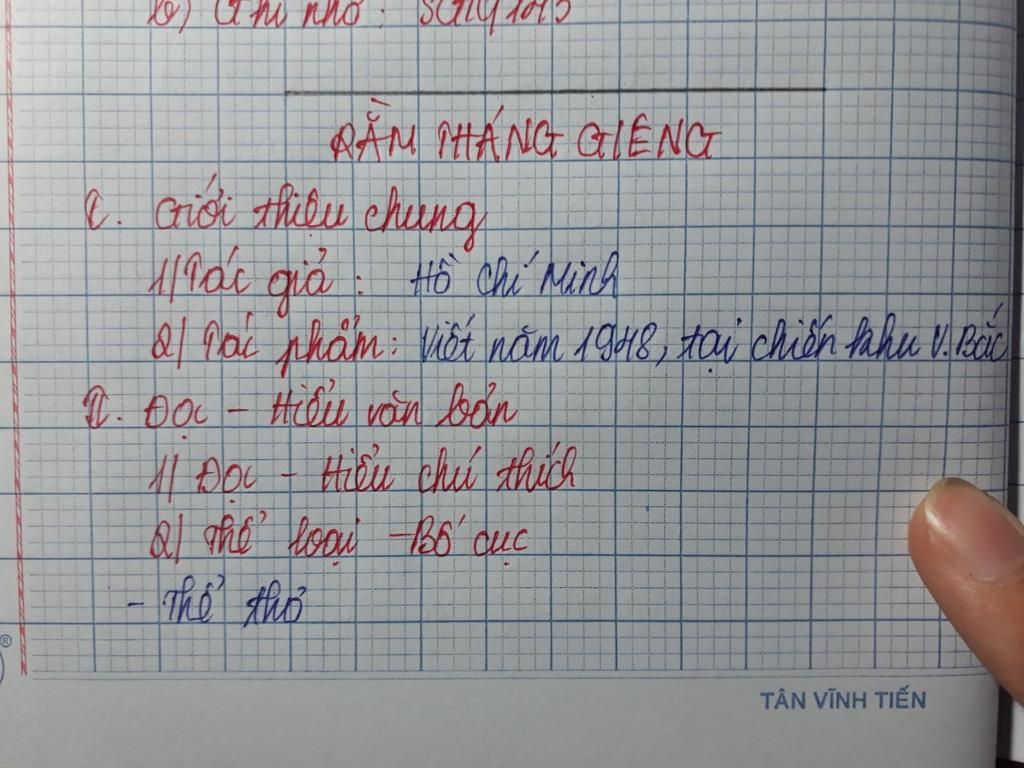 b) Ghi nhớ: SGK/143
RẰM THÁNG GIÊNG
I. Giới thiệu chung
1/ Tác giả: Hồ Chí Minh
2/ Tác phẩm: Viết năm 1948, tại chiến khu V.Bắc
II. Đọc - Hiểu văn bản
1/ Đọc - Hiểu chú thích
2/ Thể loại - Bố cục
- Thể thơ
®
TÂN VĨNH TIẾN